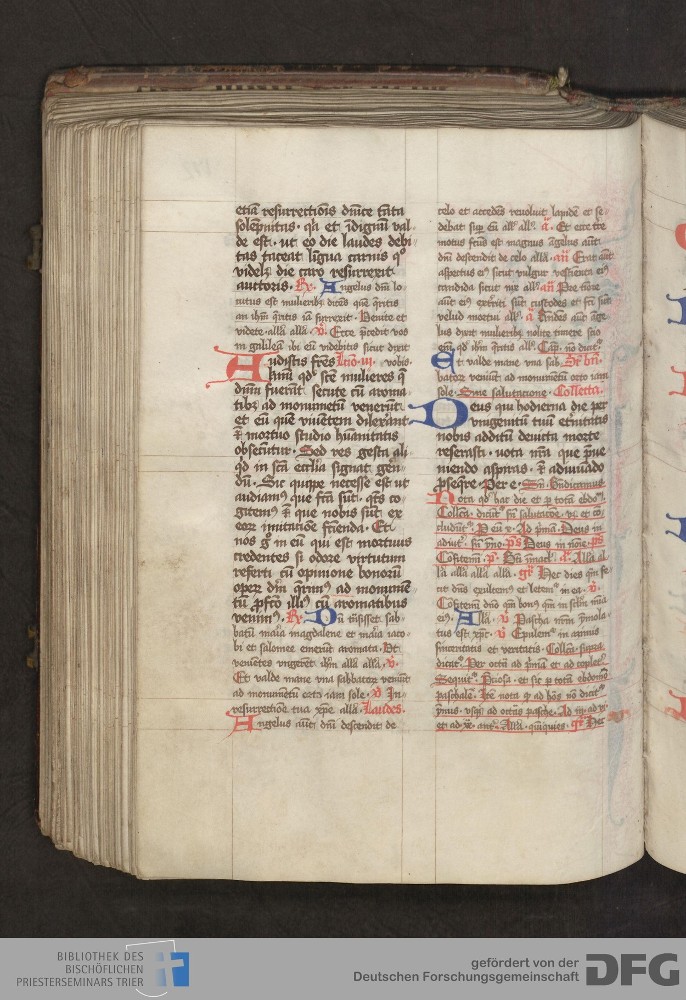 etiā resurrectiōis dnīce tāta
solēpnitas · qͣ et īdignū val
de est · ut eo die laudes debi
tas taceat ligua carnis qͦ
videlꝫ die caro resurrexit
auctoris · R̄ · Angelus dnī lo
cutus est mulieribꝫ dicēs quē q̄ritis
an ihm̄ q̄ritis iā surrexit · Venite et
videte · alla alla · v̄ · Ecce p̄cedit vos
in galileā ibi eū videbitis sicut dixit
Audistis frēs Lctio · iij · vobis ·
kīmi qd̓ scē mulieres q̄
dnm̄ fuerūt secute cū aroma
tibꝫ ad monumētū venerūt
et eū quē viuētem dilexāt
ꝫ mortuo studio hūanitatis
obsecūtur · Sed res gesta ali
qd̓ in scā eccl̄ia signat gen̄
dū · Sic quippe necesse est ut
audiamꝰ que fcā sūt · qtꝫ co
gitemꝰ ꝫ que nobis sūt ex
eorꝫ imitatiōe fciēda · Et
nos gͦ in eū qui est mortuus
credentes si odore virtutum
referti cū opinione bonorū
operꝫ dnm̄ q̄rimꝰ ad monumē
tū ꝓfcō illiꝰ cū aromatibus
venimꝰ · R̄ · Dū trāsisset sab
batū maria magdalene et maria iaco
bi et salomee emerūt aromata · Ut
veniētes vngerēt ihm̄ alla alla · v̄ ·
Et valde mane vna sabbatorꝫ veniūt
ad monumētū orto iam sole · v̄ In
resurrectiōe tua xp̄e alla · Laudes ·
Angelus aūt dnī descendit de
celo et accedēs reuoluit lapidē et se
debat suꝑ eū all̄ all̄ · ā · Et ecce tre
motus fcūs est magnus āgelus aūt
dnī descendit de celo alla · an̄ Erat aūt
aspectus eiꝰ sicut vulgur vestimēta eiꝰ
candida sicut nix all̄ · an̄ Pre timore
aūt eiꝰ exterriti sūt custodes et fcī sūt
velud mortui all̄ · ā Rn̄dēs aūt āge
lus dixit mulieribꝫ nolite timere scio
enī qd̓ ihm̄ q̄ritis all̄ · Cap̄ · nō dicit̄ ·
Et valde mane vna sab · Sr̄ bn̄ ·
batorꝫ veniūt ad monumētū orto iam
sole · Sine salutacione · Collecta ·
Deus qui hodierna die per
vnigenitū tuū et̄nitatis
nobis aditū deuicta morte
reserasti · vota nrā que p̄ue
niendo aspiras · ꝫ adiuuādo
ꝓseq̄re · Per e · Sn̄ · Bndicamus
Nota qd̓ hac die et ꝑ totā ebdoꝫ ·
Collcā · dicūt̄ sn̄ salutacōe · vꝫ et cō
cludūt̄ · P eū x · Ad pmā · Deus in
adiut̄ · sn̄ ymo · ps̄ Deus in noīe · ps̄
Cōfitemī · p̄ · Bt̄i īmacl̄ · ā · Alla al
la alla alla alla · gr̄ Hec dies qm̄ fe
cit dn̄s exultemꝰ et letemꝰ in ea · v̄ ·
Cōfitemī dn̄o qm̄ bonꝰ qm̄ in sclm̄ mīa
eiꝰ · Alla · v̄ Pascha nrm̄ ymola
tus est xp̄c · v̄ Epulemꝰ in azimis
sinceritatis et veritatis · Collcā · supra
dicit̄ · Per octā ad pmā et ad cōplet̄
Sequit̄ · Prosa · et sic ꝑ totā ebdomā
paschalē · Itē nota qͩ ad hꝰ nō dicit̄
ymnus · vsqꝫ ad octās pasche · Ad iij · ad vi ·
et ad ix · ant̄ · Alla · quīquies · gr̄ Hec
BIBLIOTHEK DES
BISCHÖFLICHEN
PRIESTERSEMINARS TRIER
gefördert von der
Deutschen Forschungsgemeinschaft
DFG